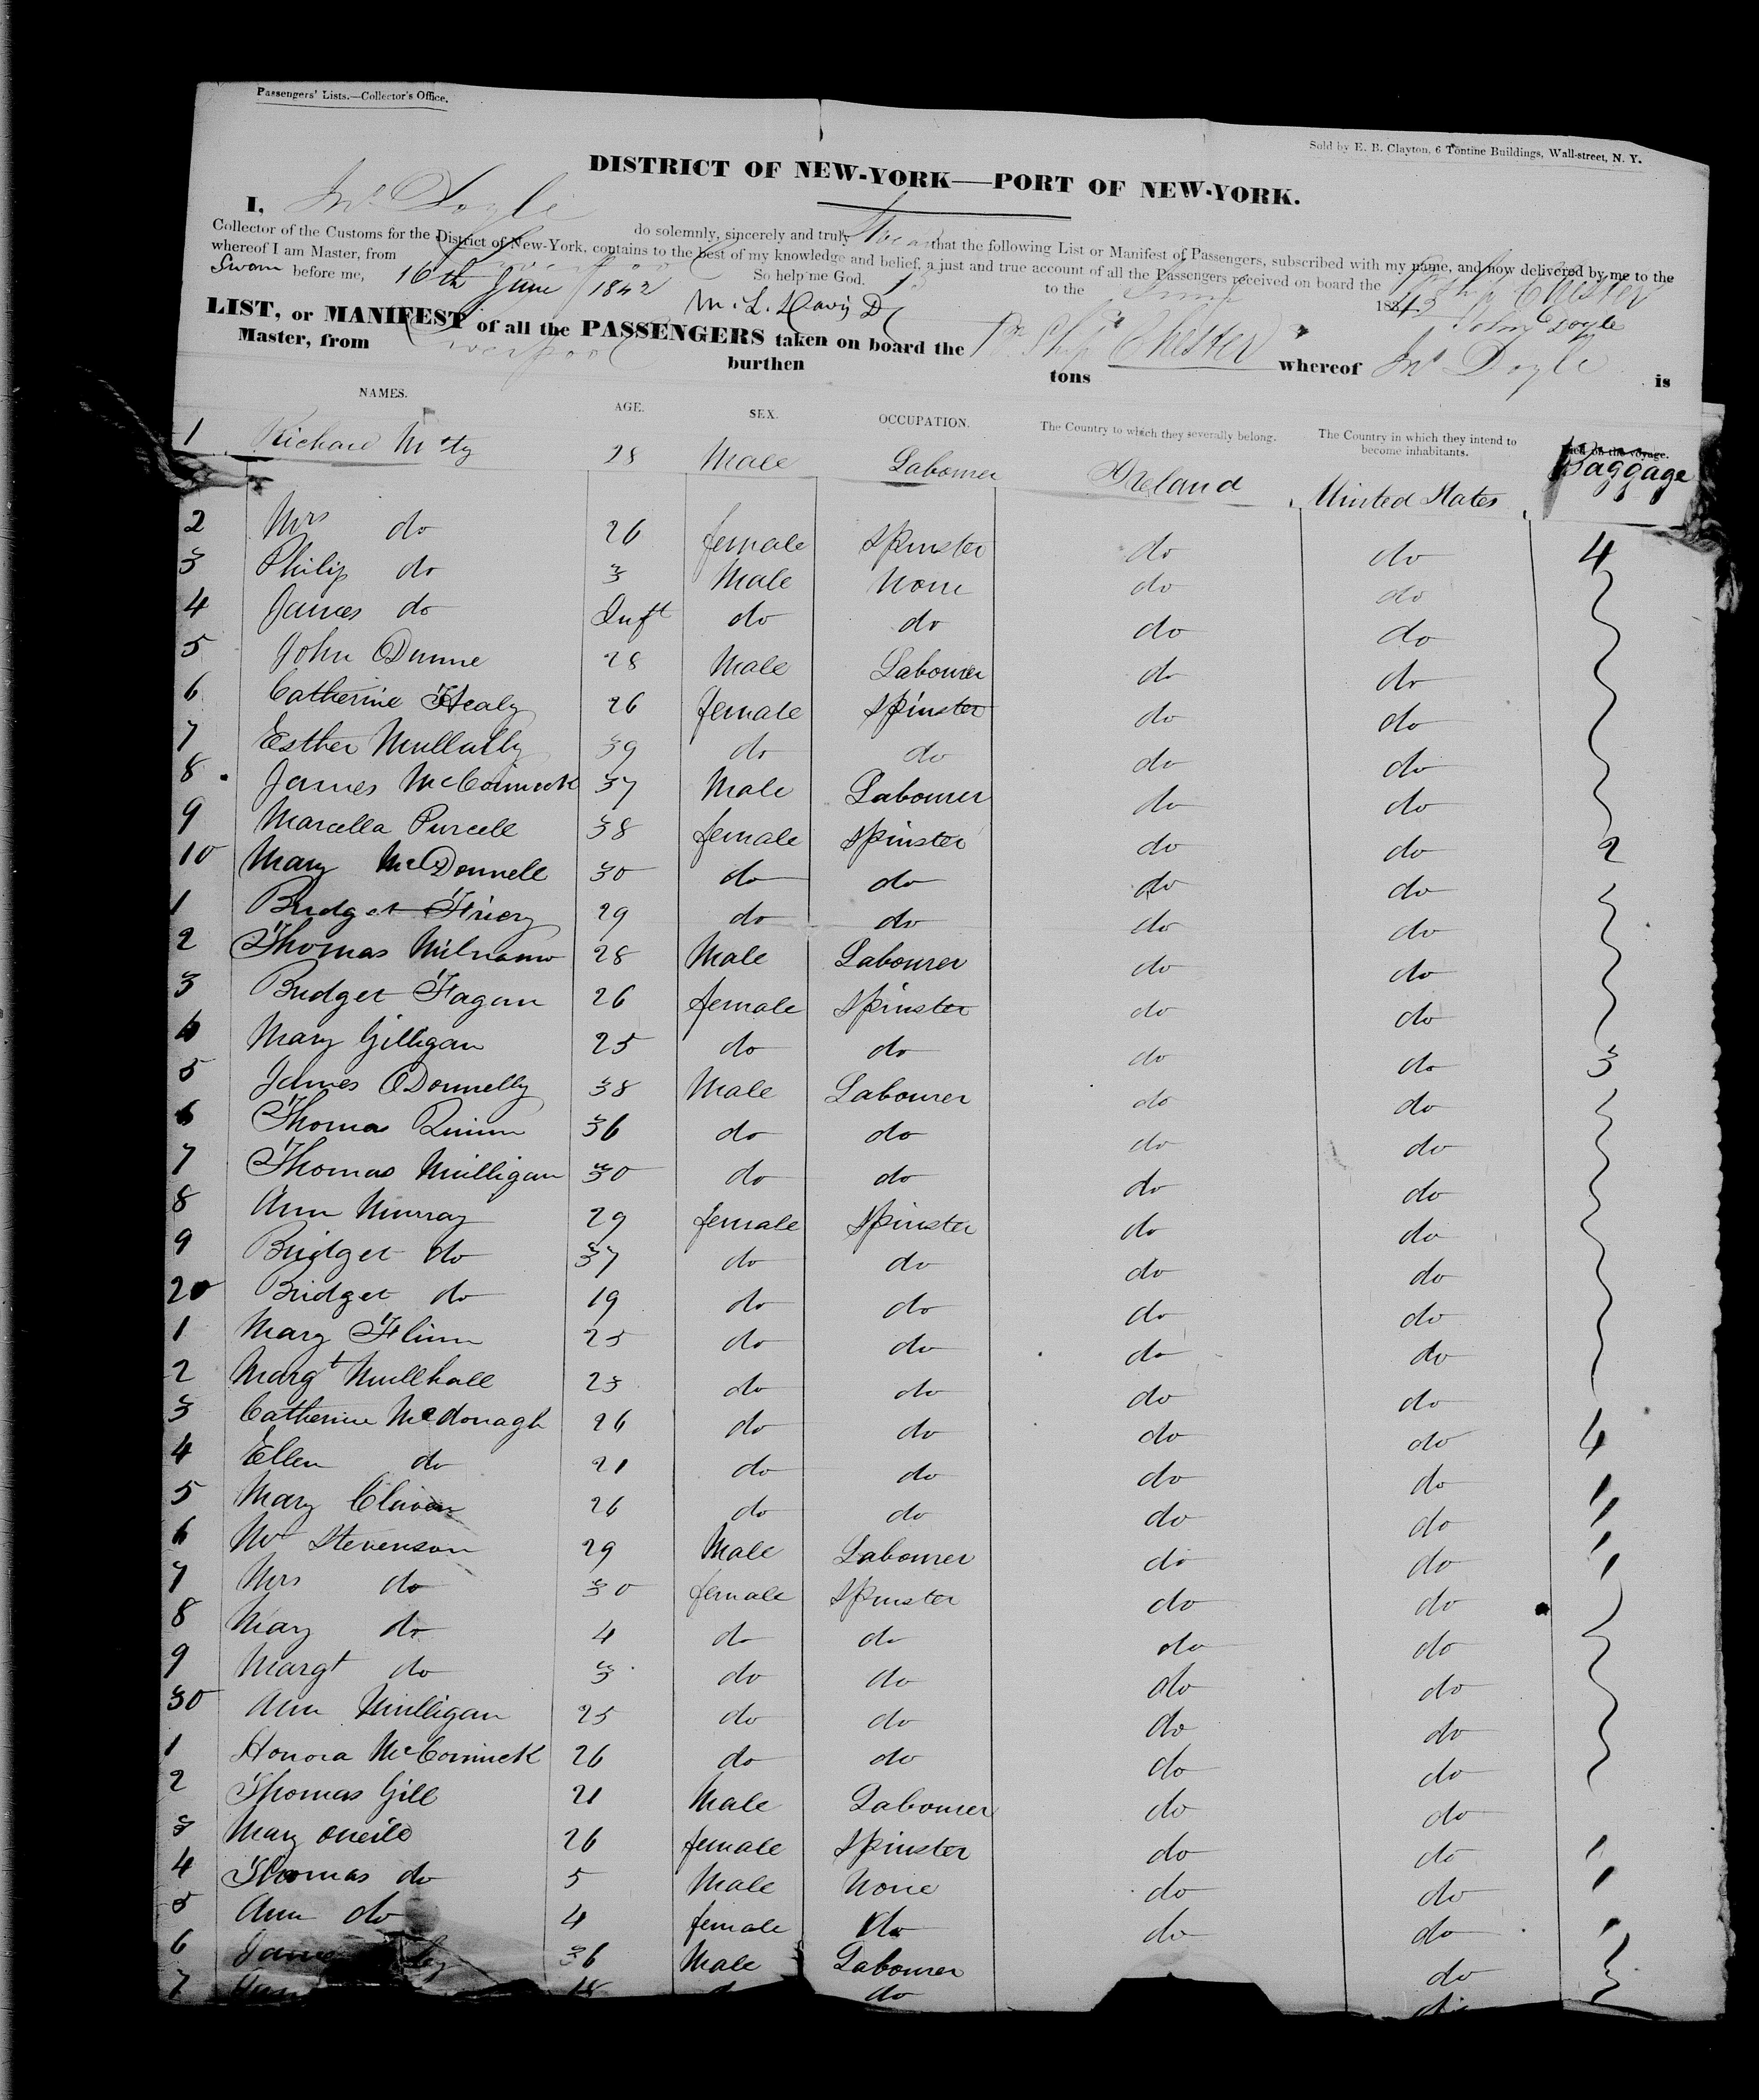 Passengers' Lists.—Collector's Office.
Sold by E. B. Clayton, 6 Tontine Buildings, Wall-street, N. Y.
DISTRICT OF NEW-YORK—PORT OF NEW-YORK.
I, Jno Doyle do solemnly, sincerely and truly Swear that the following List or Manifest of Passengers, subscribed with my name, and now delivered by me to the
Collector of the Customs for the District of New-York, contains to the best of my knowledge and belief, a just and true account of all the Passengers received on board the Ship Chester
whereof I am Master, from Liverpool So help me God.
Sworn before me, 16th June 1842 to the 183
M. L. Davis D John Doyle
LIST, or MANIFEST of all the PASSENGERS taken on board the Ship Chester whereof Jno Doyle is
Master, from Liverpool burthen tons
NAMES. AGE. SEX. OCCUPATION. The Country to which they severally belong. The Country in which they intend to become inhabitants. Died on the voyage.
Baggage
1 Richard 28 Male Labourer Ireland United States
2 Mrs do 26 female Spinster do do 4
3 Philip do 3 Male None do do
4 James do Inft do do do do
5 John ODunne 28 Male Labourer do do
6 Catherine Healy 26 female Spinster do do
7 Esther Mullally 39 do do do do
8 James McCormick 37 Male Labourer do do
9 Marcella Purcell 38 female Spinster do do 2
10 Mary McDonnell 30 do do do do
1 Bridget Friery 29 do do do do
2 Thomas 28 Male Labourer do do
3 Bridget Fagan 26 female Spinster do do
4 Mary Gilligan 25 do do do do 3
5 James ODonnelly 38 Male Labourer do do
6 Thomas Quinn 36 do do do do
7 Thomas Mulligan 30 do do do do
8 Ann Murray 29 female Spinster do do
9 Bridget do 37 do do do do
20 Bridget do 19 do do do do
1 Mary Flinn 25 do do do do
2 Margt Mullhall 23 do do do do
3 Catherine McDonagh 26 do do do do 4
4 Ellen do 21 do do do do "
5 Mary 26 do do do do "
6 Mr Stevenson 29 Male Labourer do do "
7 Mrs do 30 female Spinster do do
8 Mary do 4 do do do do
9 Margt do 3 do do do do
30 Ann Mulligan 25 do do do do
1 Honora McCormick 26 do do do do
2 Thomas Gill 21 Male Labourer do do
3 Mary Oneile 26 female Spinster do do
4 Thomas do 5 Male None do do
5 Ann do 4 female do do do
6 James 36 Male Labourer do
7 18 do do